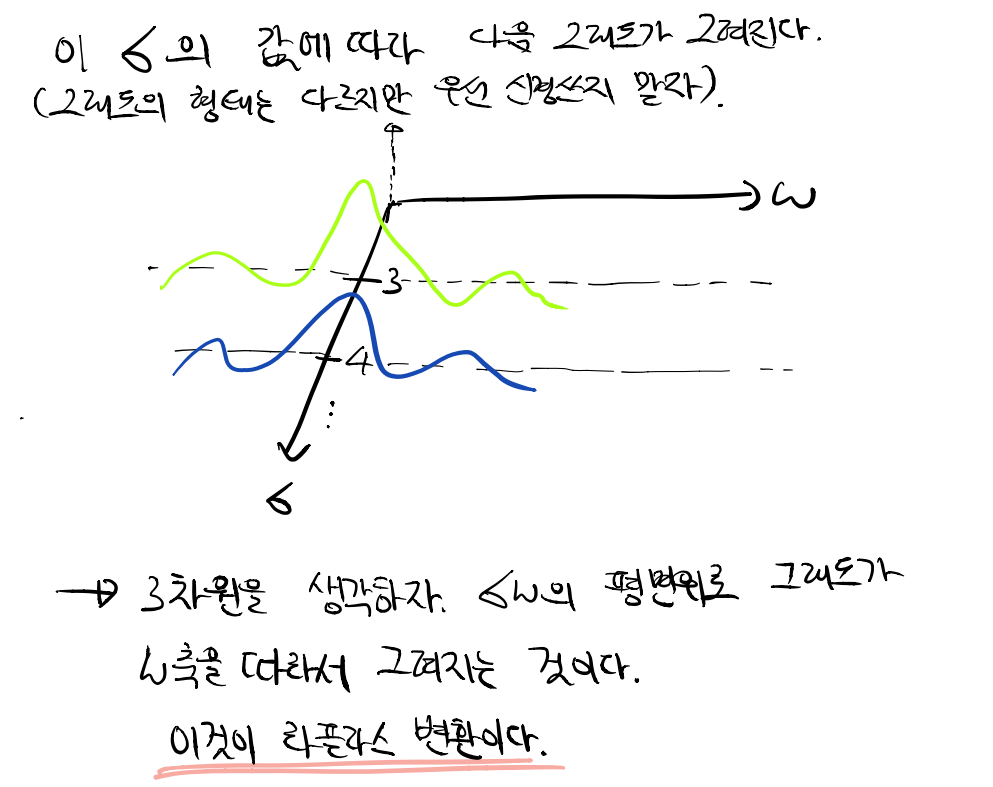 이 σ의 값에 따라 다음 그래프가 그려진다.
(그래프의 형태는 다르지만 우선 신경쓰지 말자).
ω
3
4
⋮
σ
→ 3차원을 생각하자. σω의 평면위로 그래프가
ω축을 따라서 그려지는 것이다.
이것이 라플라스 변환이다.